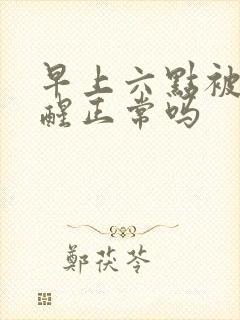 早上六點被
醒正常吗
鄭茯苓